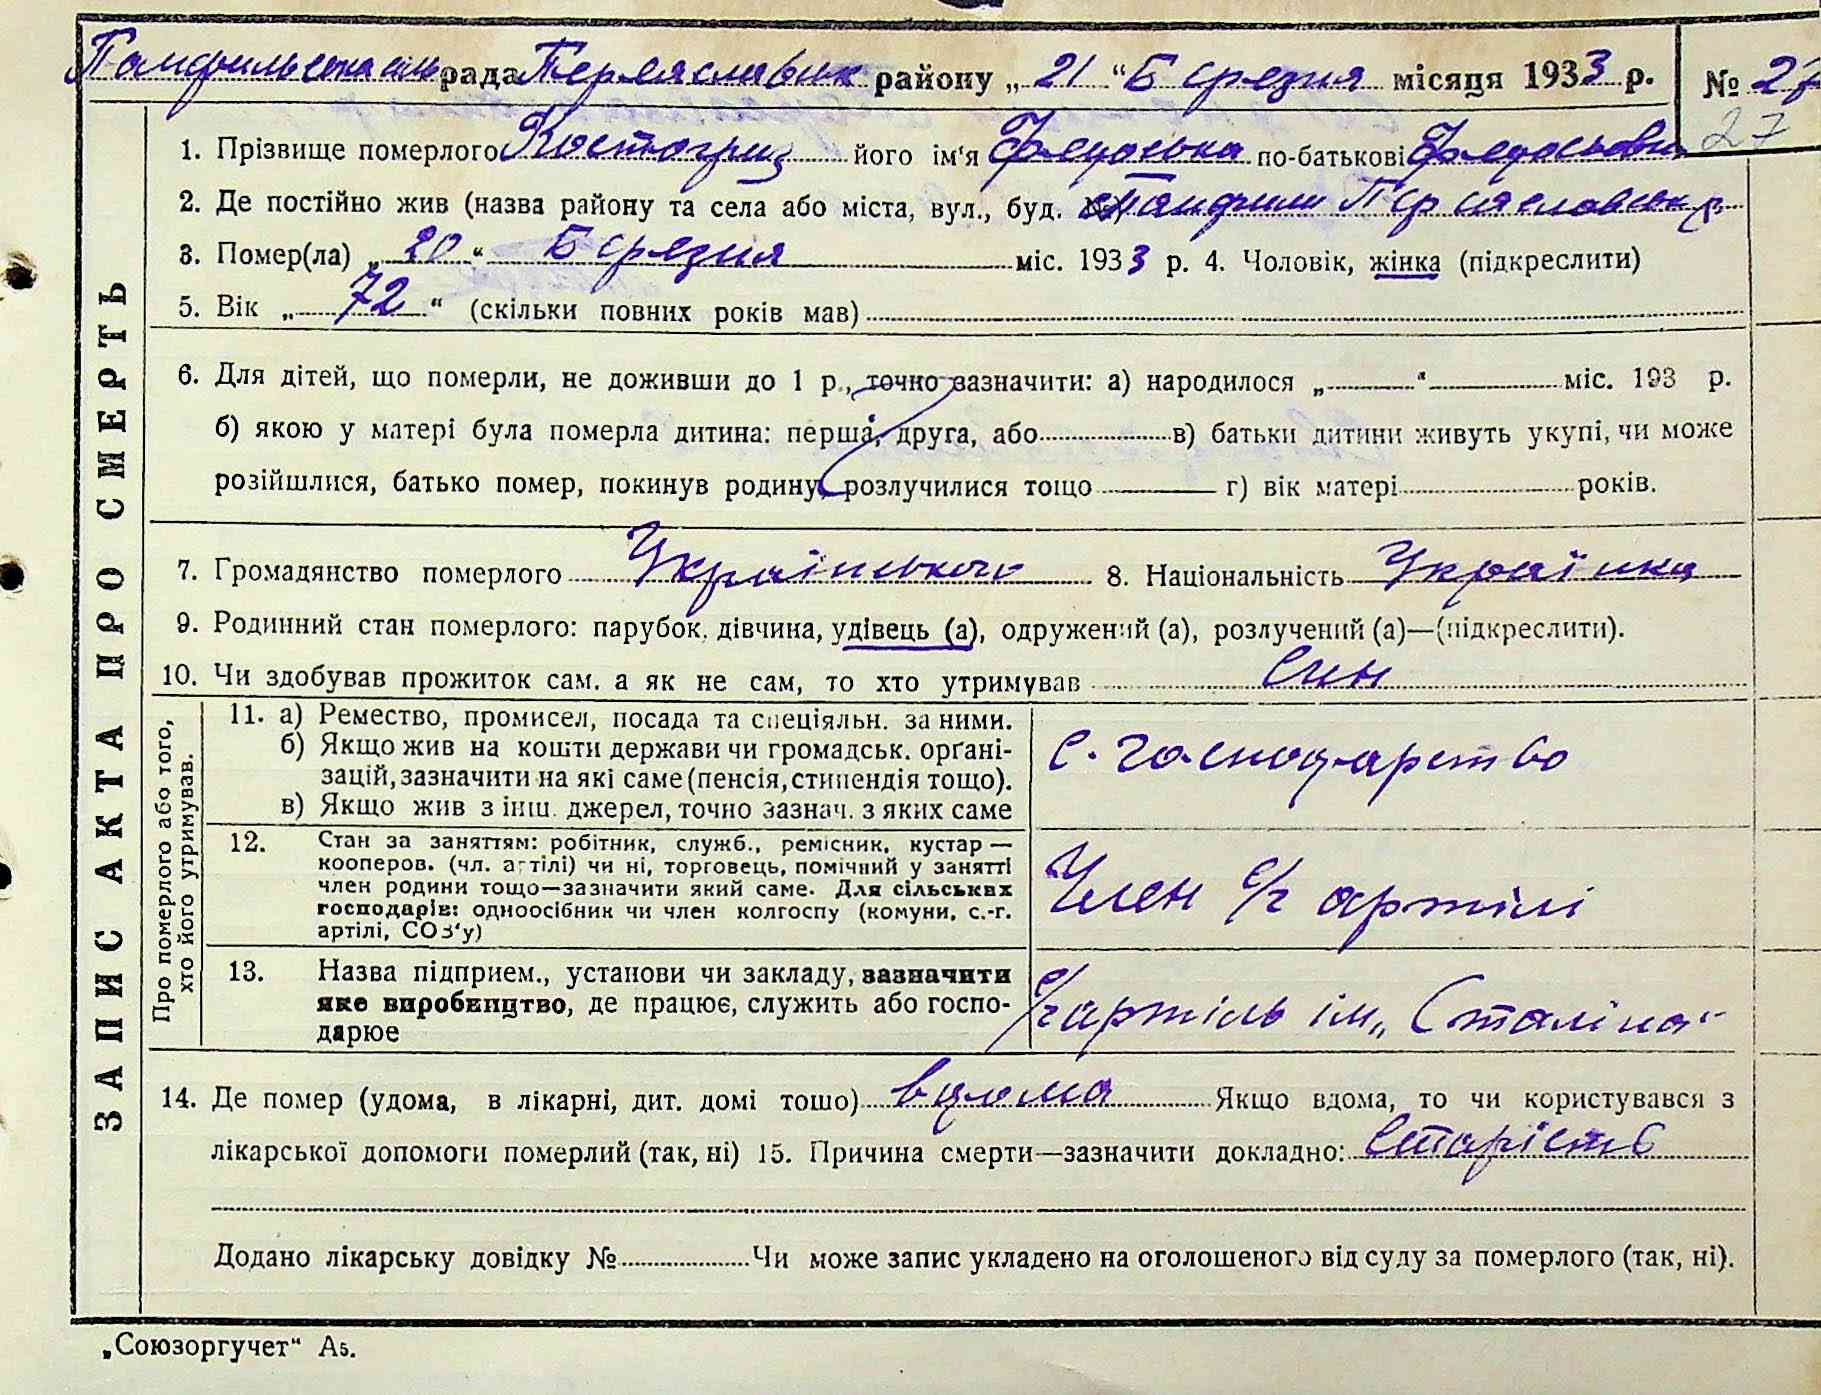 Памфильська сіль рада Переяславськ району „21" Березня місяця 1933 р. № 27
27
1. Прізвище померлого Костогриз його ім'я Федоська по-батькові Федосьовн
2. Де постійно жив (назва району та села або міста, вул., буд. №) Памфили Переяславськ р
3. Помер(ла) „20" Березня міс. 1933 р. 4. Чоловік, жінка (підкреслити)
5. Вік „72" (скільки повних років мав)
6. Для дітей, що померли, не доживши до 1 р., точно зазначити: а) народилося „ " міс. 193 р.
б) якою у матері була померла дитина: перша, друга, або в) батьки дитини живуть укупі, чи може
розійшлися, батько помер, покинув родину, розлучилися тощо г) вік матері років.
7. Громадянство померлого Українського 8. Національність Українка
9. Родинний стан померлого: парубок, дівчина, удівець (а), одружений (а), розлучений (а)—(підкреслити).
10. Чи здобував прожиток сам, а як не сам, то хто утримував Син
ЗАПИС АКТА ПРО СМЕРТЬ
Про померлого або того,
хто його утримував.
11. а) Ремество, промисел, посада та спеціяльн. за ними.
б) Якщо жив на кошти держави чи громадськ. орґані-
зацій, зазначити на які саме (пенсія, стипендія тощо).
в) Якщо жив з інш. джерел, точно зазнач. з яких саме
с. господарство
12. Стан за заняттям: робітник, служб., ремісник, кустар —
кооперов. (чл. артілі) чи ні, торговець, помічний у занятті
член родини тощо—зазначити який саме. Для сільських
господарів: одноосібник чи член колгоспу (комуни, с.-г.
артілі, СОЗ'у)
Член с/г артілі
13. Назва підприєм., установи чи закладу, зазначити
яке виробництво, де працює, служить або госпо-
дарює
с/г артіль ім „Сталіна"
14. Де помер (удома, в лікарні, дит. домі тощо) вдома Якщо вдома, то чи користувався з
лікарської допомоги померлий (так, ні) 15. Причина смерти—зазначити докладно: Старість
Додано лікарську довідку № Чи може запис укладено на оголошеного від суду за померлого (так, ні).
„Союзоргучет" А5.